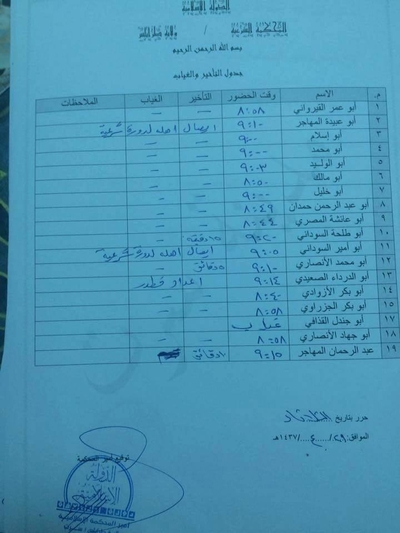 الدولة الإسلامية
المحكمة الشرعية /
بسم الله الرحمن الرحيم
جدول التأخير والغياب
م. الاسم وقت الحضور التأخير الغياب الملاحظات
١ أبو عمر القيرواني ٨:٥٨ — —
٢ أبو عبيدة المهاجر ٩:١٠ ايصال اهله لدورة شرعية
٣ أبو إسلام ٩:٠٠ — —
٤ أبو محمد ٩:٠٠ — —
٥ أبو الوليد ٩:٠٣ — —
٦ أبو مالك ٨:٥٠ — —
٧ أبو خليل ٩:٠٠ — —
٨ أبو عبد الرحمن حمدان ٨:٤٩ — —
٩ أبو عائشة المصري ٨:٤٤ — —
١٠ أبو طلحة السوداني ٩:٢٠ دقيقة
١١ أبو أمير السوداني ٩:٠٥ ايصال اهله لدورة شرعية
١٢ أبو محمد الأنصاري ٩:١٠ دقائق
١٣ أبو الدرداء الصعيدي ٩:١٤ اعداد فطور
١٤ أبو بكر الأروادي ٨:٤٠ — —
١٥ أبو بكر الجزراوي ٨:٥٨ — —
١٧ أبو جندل القذافي
١٨ أبو جهاد الأنصاري ٨:٥٨ — —
١٩ عبد الرحمان المهاجر ٩:١٥ ١٠ دقائق
حرر بتاريخ
الموافق: ٢٩/٤/١٤٣٧هـ
توقيع أمير المحكمة
الدولة
الإسلامية